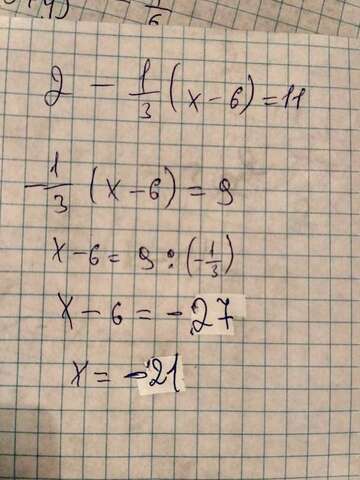 2 - 1/3 (x - 6) = 11
-1/3 (x - 6) = 9
x - 6 = 9 : (-1/3)
x - 6 = -27
x = -21